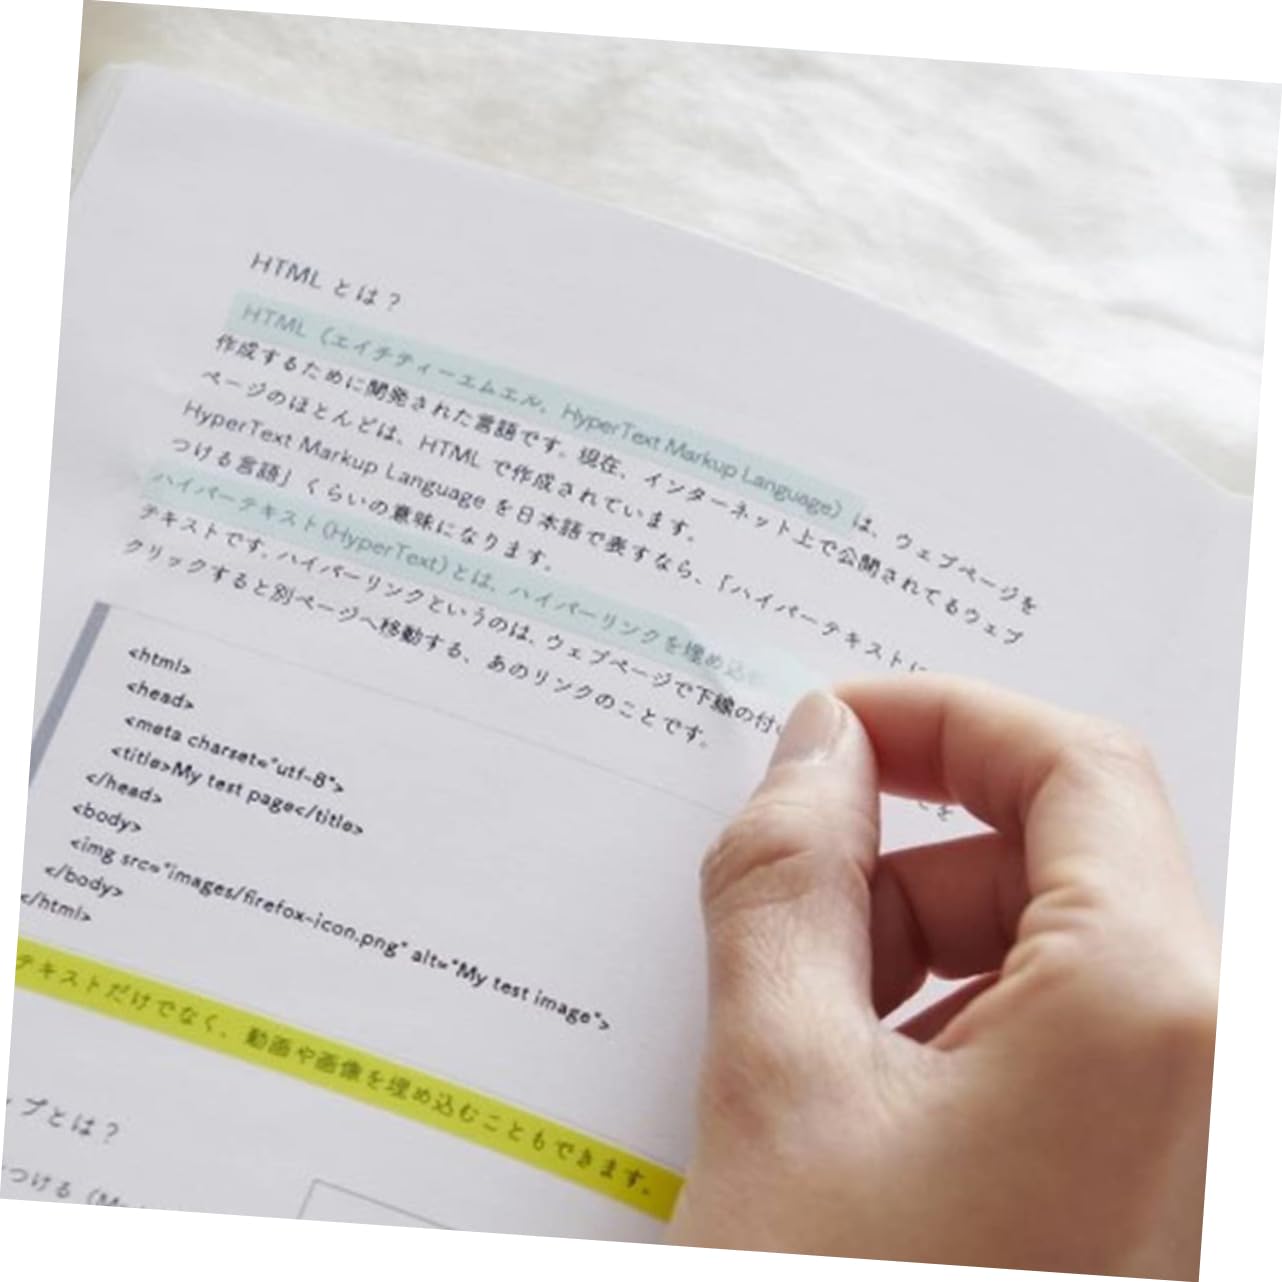 HTML とは？
HTML（エイチティーエムエル、HyperText Markup Language）は、ウェブページを
作成するために開発された言語です。現在、インターネット上で公開されてるウェブ
ページのほとんどは、HTML で作成されています。
HyperText Markup Language を日本語で表すなら、「ハイパーテキストに
つける言語」くらいの意味になります。
ハイパーテキスト(HyperText)とは、ハイパーリンクを埋め込
テキストです。ハイパーリンクというのは、ウェブページで下線の付
クリックすると別ページへ移動する、あのリンクのことです。
<html>
<head>
<meta charset="utf-8">
<title>My test page</title>
</head>
<body>
<img src="images/firefox-icon.png" alt="My test image">
</body>
</html>
テキストだけでなく、動画や画像を埋め込むこともできます。
プとは？
つける